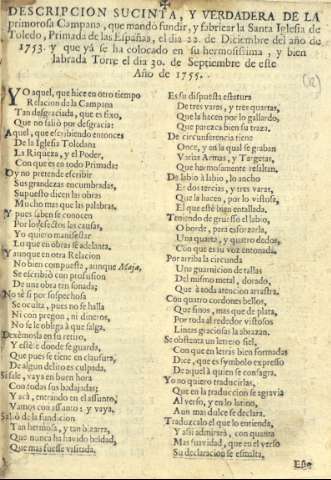 DESCRIPCION SUCINTA, Y VERDADERA DE LA
primorosa Campana, que mandò fundir, y fabricar la Santa Iglesia de
Toledo, Primada de las Españas, el dia 22. de Diciembre del año de
1753. y que yà se ha colocado en su hermosissima, y bien
labrada Torre el dia 30. de Septiembre de este
Año de 1755.
YO aquel, que hice en otro tiempo
Relacion de la Campana
Tan desgraciada, que es fixo,
Que no saliò por desgracia:
Aquel, que escribiendo entonces
De la Iglesia Toledana
La Riqueza, y el Poder,
Con que es en todo Primada:
Oy no pretende escribir
Sus grandezas encumbradas,
Supuesto dicen las obras
Mucho mas que las palabras.
Y pues saben se conocen
Por los efectos las causas,
Yo quiero manifestar
Lo que en obras se adelanta.
Y aunque en otra Relacion
No bien compuesta, aunque Maja,
Se escribiò con profusion
De una obra tan sonada;
No sè si por sospechosa
Se oculta, pues no se halla
Ni con pregon, ni dineros,
No se le obliga à que salga.
Dexèmosla en su retiro,
Y estè donde se guarda,
Que pues se tiene en clausura,
De algun delito es culpada.
Si sale, vaya en buen hora
Con todas sus badajadas;
Y acà, entrando en el assunto,
Vamos con assunto: y vaya.
Saliò de la fundicion
Tan hermosa, y tan bizarra,
Que nunca ha havido beldad,
Que mas fuesse visitada.
Es su dispuesta estatura
De tres varas, y tres quartas,
Que la hacen por lo gallardo,
Que parezca bien su traza.
De circunferencia tiene
Once, y en la qual se graban
Varias Armas, y Targetas,
Que hermosamente resaltan.
De labio à labio, lo ancho
Es dos tercias, y tres varas,
Que la hacen, por lo vistosa,
El que estè bien entallada.
Teniendo de grueso el labio,
O borde, para esforzarla,
Una quarta, y quatro dedos,
Con que es su voz entonada.
Por arriba la circunda
Una guarnicion de tallas
Del mismo metal, dorado,
Que à toda atencion arrastra.
Con quatro cordones bellos,
Que finos, mas que de plata,
Por toda al rededor vistosos
Lineas graciosas la abrazan.
Se obstenta un letrero fiel,
Con que en letras bien formadas
Dice, que es symbolo expresso
De aquel à quien se consagra.
Yo no quiero traducirlas,
Que en la traduccion se agravia
Al verso, y en lo latino,
Aun mas dulce se declara.
Traduzcalo el que lo entienda,
Y assi admirarà, con quanta
Mas suavidad, que en el verso
Su declaracion se esmalta,
Este